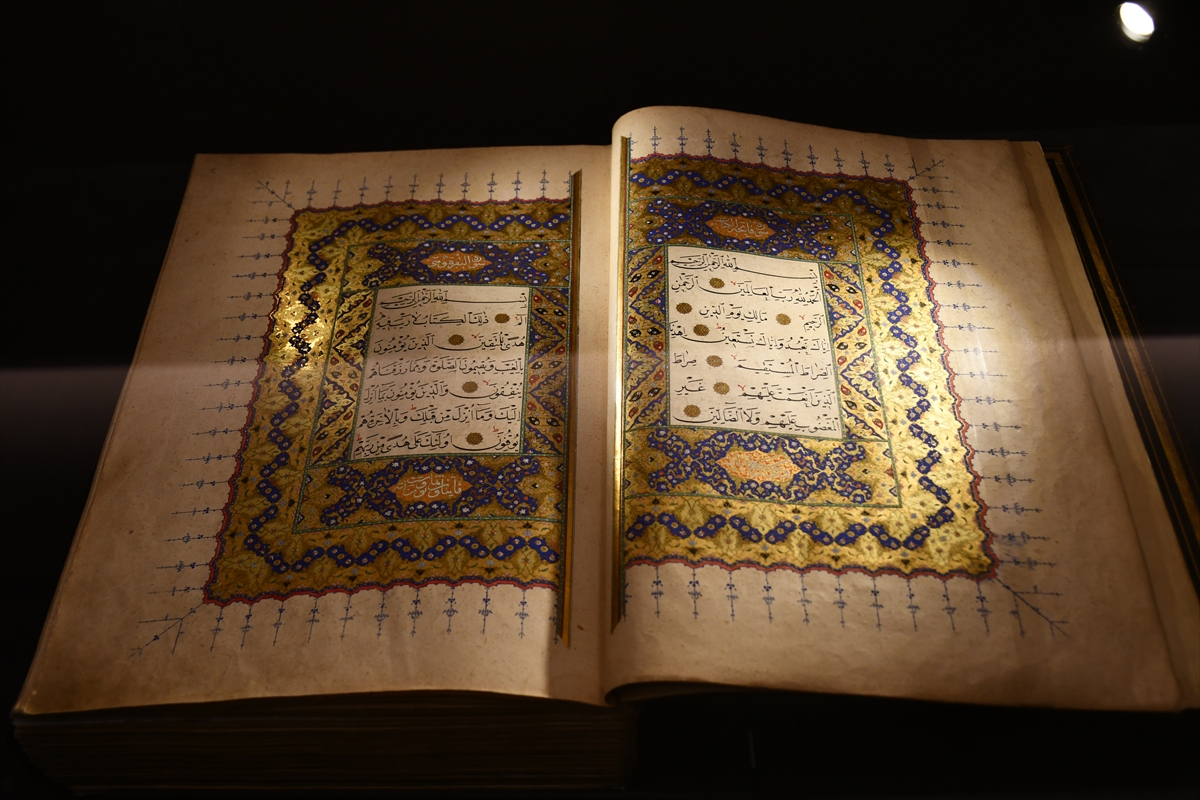 بسم الله الرحمن الرحيم
الحمد لله رب العالمين الرحمن
الرحيم مالك يوم الدين
اياك نعبد واياك نستعين اهدنا
الصراط المستقيم صراط
الذين انعمت عليهم غير
المغضوب عليهم ولا الضالين
البقرة
بسم الله الرحمن الرحيم
الم ذلك الكتاب لا ريب فيه
هدى للمتقين الذين يؤمنون
بالغيب ويقيمون الصلوة ومما رزقناهم
ينفقون والذين يؤمنون بما انزل
اليك وما انزل من قبلك وبالاخرة هم
يوقنون اولئك على هدى من ربهم